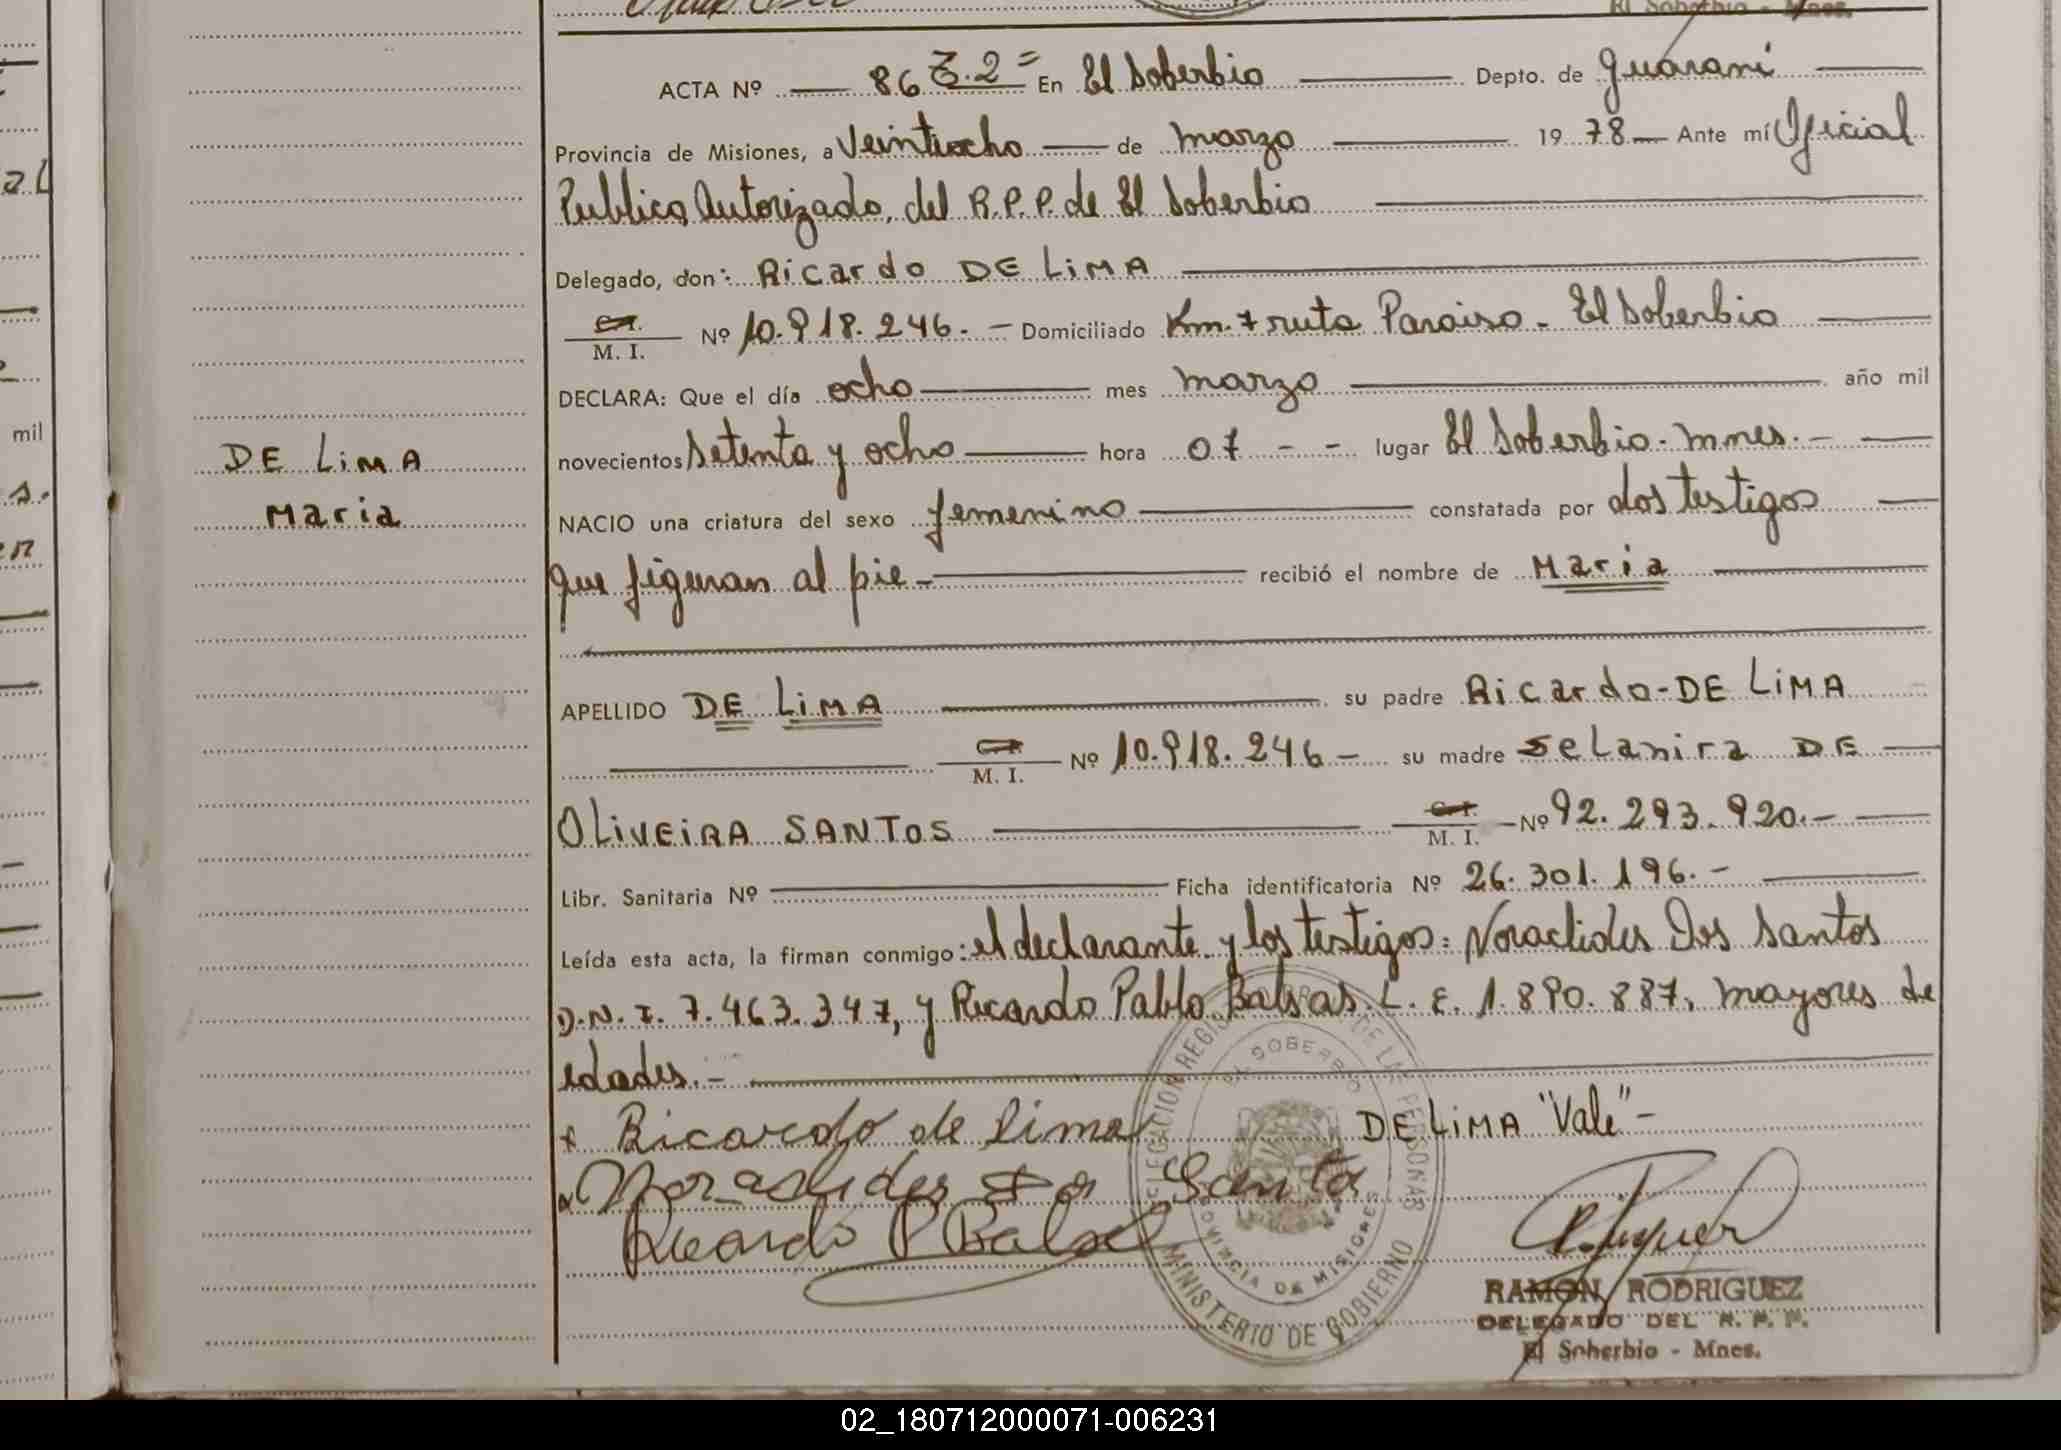 El Soberbio - Mnes.
ACTA Nº 86 En El Soberbio Depto. de guarani
Provincia de Misiones, a Veintiocho de marzo 1978 Ante mí Oficial
Publico Autorizado, del R.P.P. de El Soberbio
Delegado, don: Ricardo DE LiMA
M. I. Nº 10.918.246.- Domiciliado Km. 7 ruta Paraiso - El Soberbio
DECLARA: Que el día ocho mes marzo año mil
novecientos Setenta y ocho hora 07 - - lugar El Soberbio. mnes.-
DE LiMA
NACIO una criatura del sexo femenino constatada por dos testigos
Maria
que figuran al pie - recibió el nombre de Maria
APELLIDO DE LiMA su padre Ricardo-DE LiMA
M. I. Nº 10.918.246 - su madre SeLanira DE
OLiVEiRA SANTOS C.I. M. I. Nº 92.293.920.-
Libr. Sanitaria Nº Ficha identificatoria Nº 26.301.196.-
Leída esta acta, la firman conmigo: el declarante y los testigos: Noraclides Dos Santos
D.N.I. 7.463.347, y Ricardo Pablo Balsas L.E. 1.890.887, mayores de
edades.-
Ricardo de lima DE LiMA "Vale"-
Noraclides dos Santo
Ricardo P Balsa
DELEGACION REGISTRO DE LAS PERSONAS
EL SOBERBIO
PROVINCIA DE MISIONES
MINISTERIO DE GOBIERNO
RAMON RODRIGUEZ
DELEGADO DEL R. P. P.
El Soberbio - Mnes.
mil
02_180712000071-006231